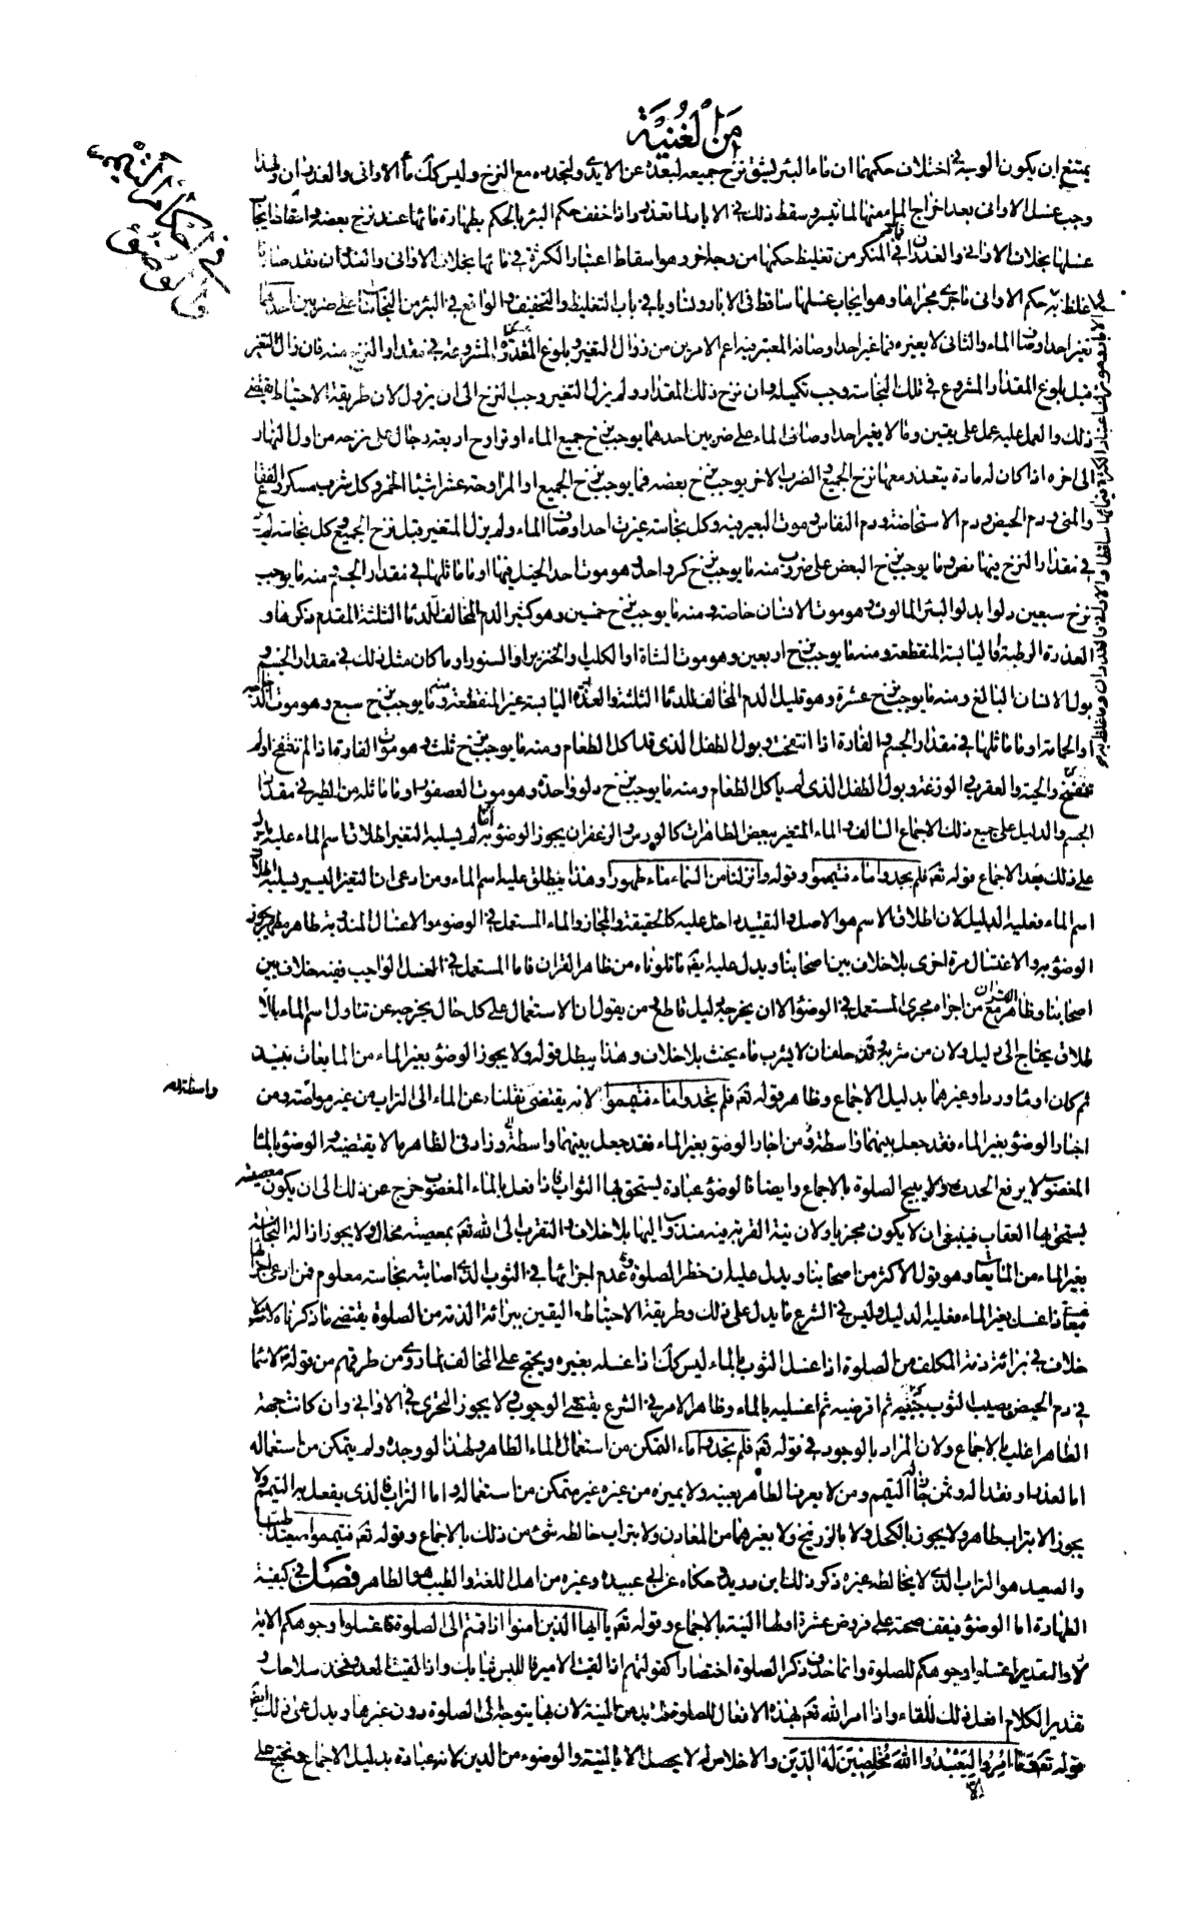 من الغنية
في احكام التيمم
والوضوء
يمتنع ان يكون الوجه في اختلاف حكمهما ان ماء البئر يشق نزح جميعه لبعده عن الايدي ولتجدده مع النزح وليس كك ماء الاواني والغدران ولهذا
وجب غسل الاواني بعد اخراج الماء منها لما تيسر وسقط ذلك في الابار لما تعذر واذا خفف حكم البئر بالحكم بطهارة مائها عند نزح بعضه واسقاط ايجاب
غسلها بخلاف الاواني والغدران في المنكر من تغليظ حكمها من وجه اخر وهو اسقاط اعتبار الكثرة في مائها بخلاف الاواني والغدران فقد صار ما
غلظ به حكم الاواني مجراها وهو ايجاب غسلها ساقطا في الابار وتساويا في باب التغليظ والتخفيف والواقع في البئر من النجاسات على ضربين احدهما
تغير احد اوصاف الماء والثاني لا يغيره فما غير احد اوصافه المعتبر فيه اعم الامرين من زوال التغير وبلوغ المقدار المشروع في مقدار النزح منه فان زال التغير
قبل بلوغ المقدار المشروع في تلك النجاسة وجب تكميله وان نزح ذلك المقدار ولم يزل التغير وجب النزح الى ان يزول لان طريقة الاحتياط يقتضي
ذلك والعمل عليه عمل على يقين وما لا يغير احد اوصاف الماء على ضربين احدهما يوجب نزح جميع الماء او تراوح اربعة رجال على نزحه من اول النهار
الى اخره اذا كان له مادة يتعذر معها نزح الجميع والضرب الاخر يوجب نزح بعضه فما يوجب نزح الجميع او المراوحة عشرة اشياء الخمر وكل شراب مسكر والفقاع
والمني ودم الحيض ودم الاستحاضة ودم النفاس وموت البعير فيه وكل نجاسة غيرت احد اوصاف الماء ولم يزل المتغير قبل نزح الجميع وكل نجاسة لم يرد
في مقدار النزح منها نص وما يوجب نزح البعض على ضروب منه ما يوجب نزح كر واحد وهو موت احد الخيل فيها او ما ماثلها في مقدار الجسم ومنه ما يوجب
نزح سبعين دلوا بدلو البئر المالوف وهو موت الانسان خاصة ومنه ما يوجب نزح خمسين وهو كثير الدم المخالف للدماء الثلثة المقدم ذكرها و
العذرة الرطبة واليابسة المنقطعة ومنه ما يوجب نزح اربعين وهو موت الشاة او الكلب والخنزير او السنور او ما كان مثل ذلك في مقدار الجسم و
بول الانسان البالغ ومنه ما يوجب نزح عشرة وهو قليل الدم المخالف للدماء الثلثة والعذرة اليابسة غير المنقطعة ومنه ما يوجب نزح سبع وهو موت الدجاجة
او الحمامة او ما ماثلها في مقدار الجسم والفارة اذا انتفخت وبول الطفل الذي قد اكل الطعام ومنه ما يوجب نزح ثلث وهو موت الفارة ما لم تنتفخ او لم
تتفسخ والحية والعقرب والوزغة وبول الطفل الذي لم ياكل الطعام ومنه ما يوجب نزح دلو واحدة وهو موت العصفور او ما ماثله من الطير في مقدار
الجسم والدليل على جميع ذلك الاجماع السالف والماء المتغير ببعض الطاهرات كالورس والزعفران يجوز الوضوء به ما لم يسلبه التغير اطلاق اسم الماء عليه يدل
على ذلك بعد الاجماع قوله تعم فلم تجدوا ماء فتيمموا وقوله وانزلنا من السماء ماء طهورا وهذا ينطلق عليه اسم الماء ومن ادعى ان التغير اليسير يسلبه اطلاق
اسم الماء فعليه الدليل لان اطلاق الاسم هو الاصل والتقييد داخل عليه كالحقيقة والمجاز والماء المستعمل في الوضوء والاغتسال المندوبة طاهر مطهر يجوز
الوضوء به والاغتسال مرة اخرى بلا خلاف بين اصحابنا ويدل عليه ايضا ما تلوناه من ظاهر القران فاما المستعمل في الغسل الواجب ففيه خلاف بين
اصحابنا وظاهر القران مع من اجراه مجرى المستعمل في الوضوء الا ان يخرجه دليل قاطع ومن يقول ان الاستعمال على كل حال يخرجه عن تناول اسم الماء بالا
طلاق يحتاج الى دليل ولان من شربه وقد حلف ان لا يشرب ماء يحنث بلا خلاف وهذا يبطل قوله ولا يجوز الوضوء بغير الماء من المايعات نبيذ
تمر كان او ماء ورد او غيرهما بدليل الاجماع وظاهر قوله تعم فلم تجدوا ماء فتيمموا لانه يقتضي نقلنا عن الماء الى التراب من غير واسطة ومن
واسطة
اجاز الوضوء بغير الماء فقد جعل بينهما واسطة ومن اجاز الوضوء بغير الماء فقد جعل بينهما واسطة وزاد في الظاهر ما لا يقتضيه والوضوء بالماء
المغصوب لا يرفع الحدث ولا يبيح الصلوة بالاجماع وايضا فالوضوء عبادة يستحق بها الثواب فاذا فعل بالماء المغصوب خرج عن ذلك الى ان يكون معصية
يستحق بها العقاب فينبغي ان لا يكون مجزيا ولان نية القربة فيه مندوب اليها بلا خلاف والتقرب الى الله تعم بمعصيته محال ولا يجوز ازالة النجاسة
بغير الماء من المايعات وهو قول الاكثر من اصحابنا ويدل عليه ان حظر الصلوة وعدم اجزائها في الثوب الذي اصابته نجاسة معلوم فمن ادعى اجزائها
فيه اذا غسل بغير الماء فعليه الدليل وليس في الشرع ما يدل على ذلك وطريقة الاحتياط واليقين ببرائة الذمة من الصلوة يقتضي ما ذكرناه لانه لا
خلاف في برائة ذمة المكلف من الصلوة اذا غسل الثوب بالماء وليس كك اذا غسله بغيره ويحتج على المخالف بما روي من طرقهم من قوله لاسماء
في دم الحيض يصيب الثوب حتيه ثم اقرضيه ثم اغسليه بالماء وظاهر الامر في الشرع يقتضي الوجوب ولا يجوز التحري في الاواني وان كانت جهة
الطاهر اغلب بالاجماع ولان المراد بالوجود في قوله تعم فلم تجدوا ماء التمكن من استعمال الماء الطاهر ولهذا لو وجده ولم يتمكن من استعماله
اما لعذر او فقد الة وثمن جاز التيمم ومن لا يعرف الطاهر بعينه ولا يميزه من غيره غير متمكن من استعماله واما التراب الذي يفعل به التيمم فلا
يجوز الا بتراب طاهر ولا يجوز بالكحل ولا بالزرنيخ ولا بغيرهما من المعادن ولا بتراب خالطه شئ من ذلك بالاجماع وقوله تعم فتيمموا صعيدا طيبا
والصعيد هو التراب الذي لا يخالطه غيره ذكر ذلك ابن دريد وحكاه عن ابي عبيدة وغيره من اهل اللغة والطيب هو الطاهر فصل في كيفية
الطهارة اما الوضوء فيقف صحته على فروض عشرة اولها النية بالاجماع وقوله تعم يا ايها الذين امنوا اذا قمتم الى الصلوة فاغسلوا وجوهكم الاية
لان التقدير اغسلوا وجوهكم للصلوة وانما حذف ذكر الصلوة اختصارا كقولهم اذا لقيت الامير فالبس ثيابك واذا لقيت العدو فخذ سلاحك و
تقدير الكلام افعل ذلك للقاء واذا امر الله تعم بهذه الافعال للصلوة فلا بد من النية لان بها يتوجه الى الصلوة دون غيرها ويدل على ذلك ايضا
قوله تعم وما امروا الا ليعبدوا الله مخلصين له الدين والاخلاص له لا يحصل الا بالنية والوضوء من الدين لانه عبادة بدليل الاجماع ويحتج على